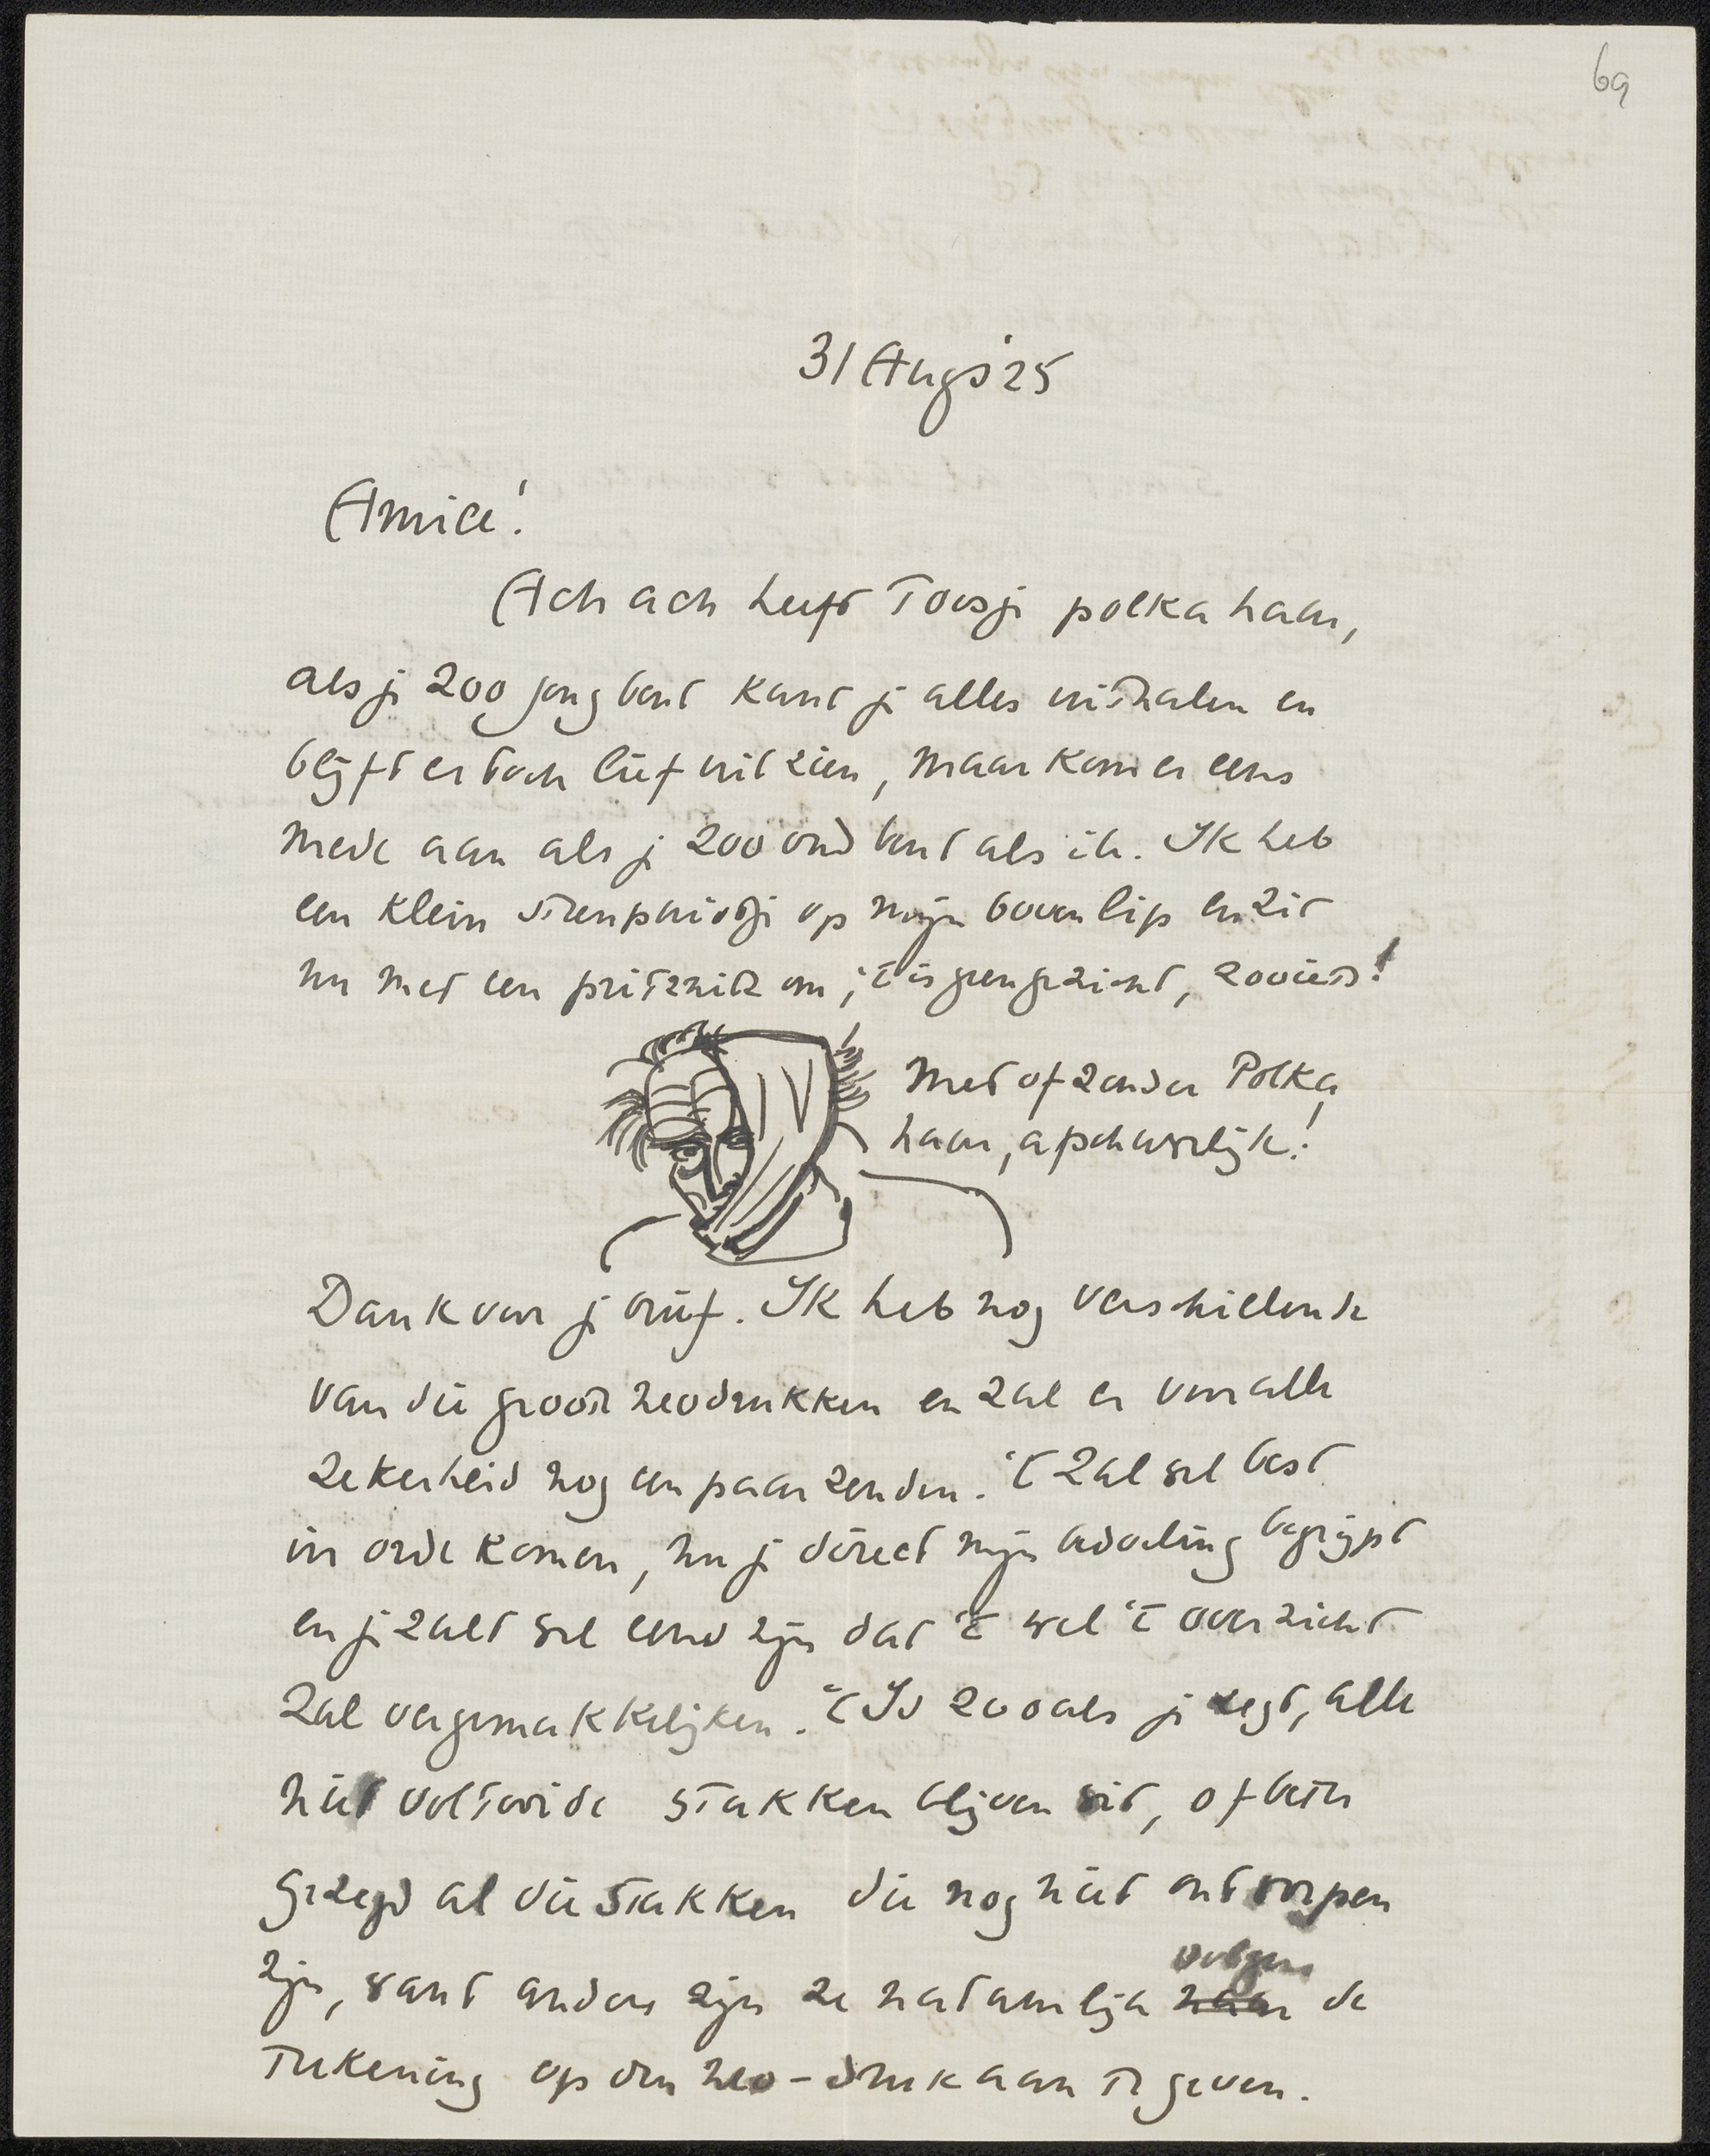 69
31 Aug's '25
Amice!
Ach ach heeft Toosje polka haar,
als je zoo jong bent kant je alles uithalen en
blijft er toch lief uit zien, maar kom er eens
mede aan als je zoo oud bent als ik. Ik heb
een klein steenpuistje op mijn bovenlip en zit
nu met een pritznitz om; 't is geen gezicht, zooiets!
Met of zonder Polka
haar, afschuwelijk!
Dank voor je brief. Ik heb nog verschillende
van die groote neodrukken en zal er voor alle
zekerheid nog een paar zenden. 't Zal wel best
in orde komen, nu je direct mijn bedoeling begrijpt
en je zult wel eens zijn dat 't wel 't overzicht
zal vergemakkelijken. 't Is zooals je zegt, alle
niet voltooide stukken blijven wit, of beter
gezegd al die stukken die nog niet ontworpen
zijn, want anders zijn ze natuurlijk volgens de
teekening op den neo-druk aan te geven.